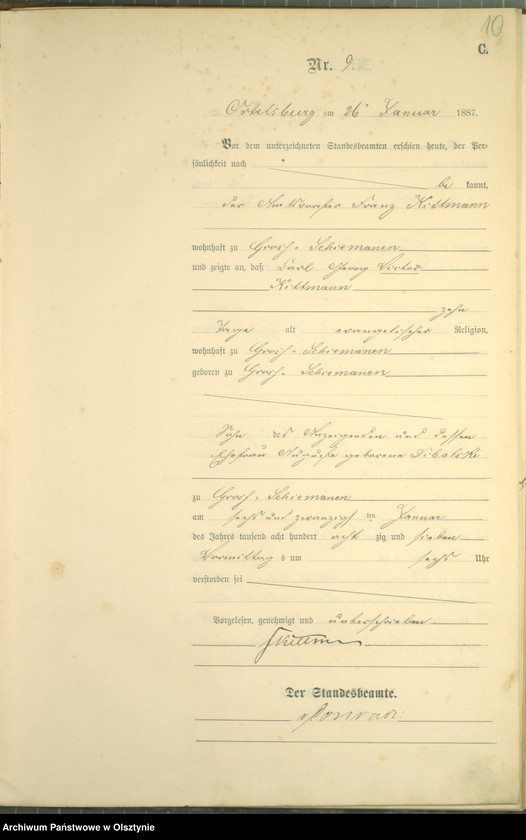 10
C.
Nr. 9.
Ortelsburg am 26ten Januar 1887.
Vor dem unterzeichneten Standesbeamten erschien heute, der Per-
sönlichkeit nach
be kannt,
der Franz Kittmann
wohnhaft zu Groß-Schiemanen
und zeigte an, daß Carl Georg Victor
Kittmann
zehn
Tage alt evangelischer Religion,
wohnhaft zu Groß-Schiemanen
geboren zu Groß-Schiemanen
Sohn des Anzeigenden und dessen
Ehefrau Auguste geborene
zu Groß-Schiemanen
am sechs und zwanzigsten Januar
des Jahres tausend acht hundert acht zig und sieben
Vormittags um sechs Uhr
verstorben sei
Vorgelesen, genehmigt und unterschrieben
Kittmann
Der Standesbeamte.
Archiwum Państwowe w Olsztynie